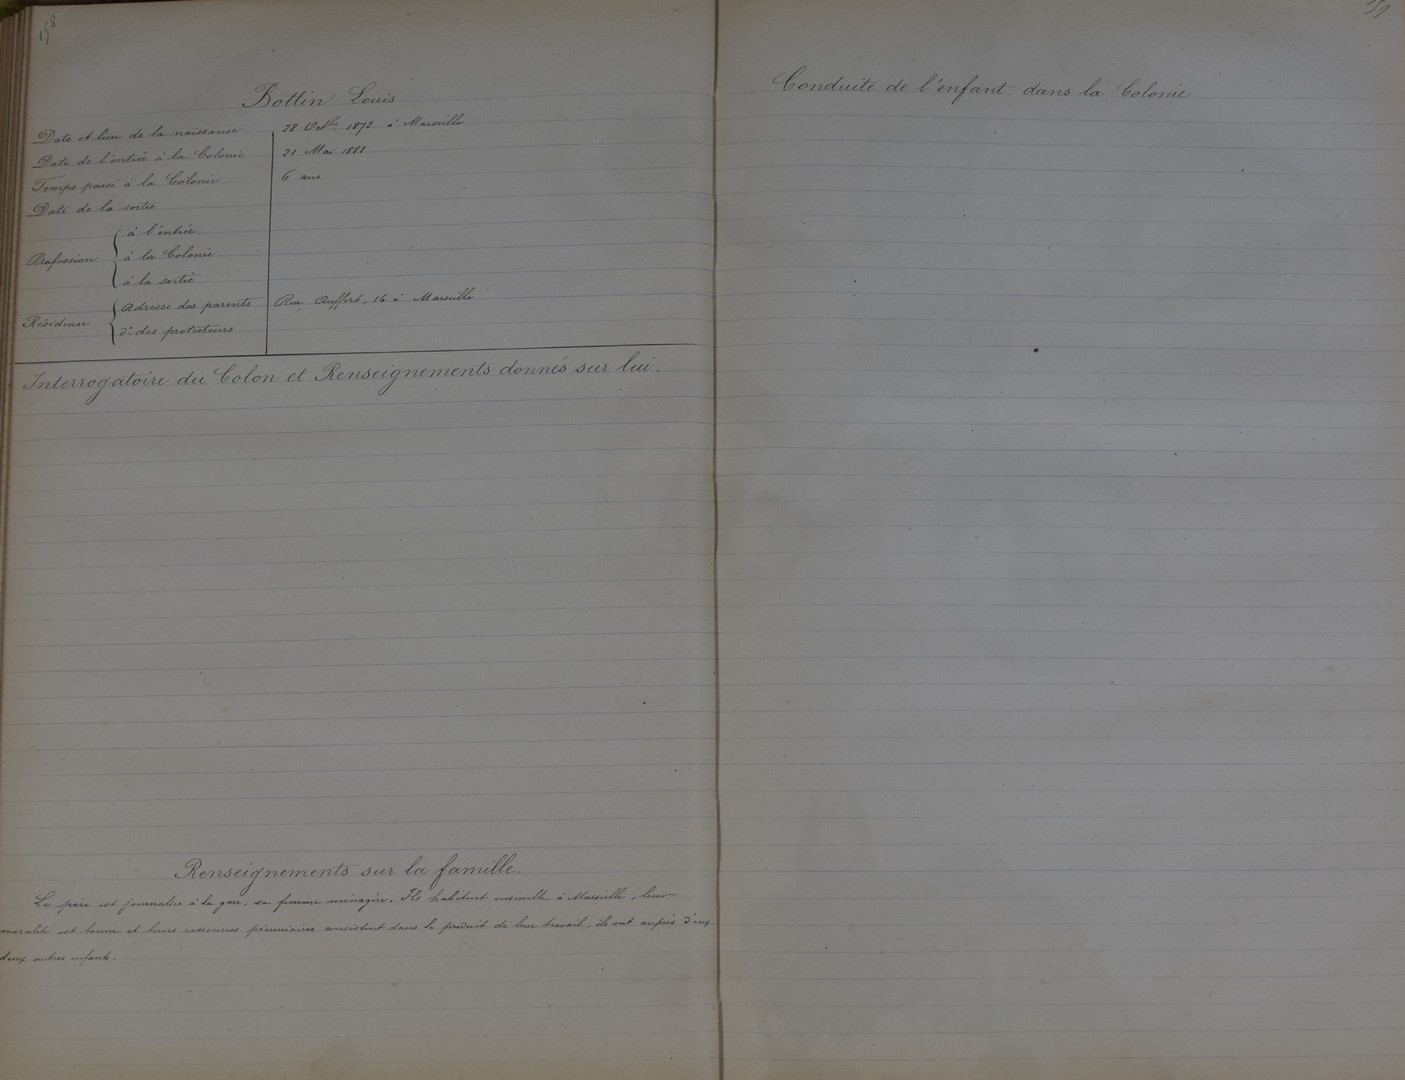 158
Bottin Louis
Date et lieu de la naissance 28 Oct. 1872 à Marseille
Date de l'entrée à la Colonie 21 Mai 1881
Temps passé à la Colonie 6 ans
Date de la sortie
Profession
à l'entrée
à la Colonie
à la sortie
Résidence
Adresse des parents Rue Auffert, 16 à Marseille
d° des protecteurs
Interrogatoire du Colon et Renseignements donnés sur lui.
Renseignements sur la famille.
Le père est journalier à la gare, sa femme ménagère. Ils habitent ensemble à Marseille, leur
moralité est bonne et leurs ressources pécuniaires consistent dans le produit de leur travail, ils ont auprès d'eux
deux autres enfants.
Conduite de l'enfant dans la Colonie